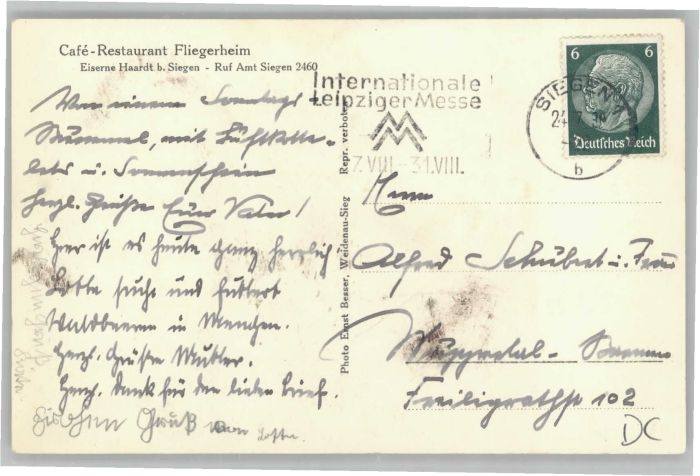 Café-Restaurant Fliegerheim
Eiserne Haardt b. Siegen - Ruf Amt Siegen 2460
Von einem Sonntags
Bummel, mit
u. Sonnenschein
herzl. Grüße Euer Vater!
Hier ist es heute ganz herrlich!
Lotte sucht und futtert
Waldbeeren in Mengen.
Herzl. Grüße Mutter.
Herzl. Dank für den lieben Brief.
Gruß von Lotte.
Photo Ernst Besser, Weidenau-Sieg Repr. verboten
Internationale
Leipziger Messe
31.VIII.
SIEGEN
24. 7.
b
6 6
Deutsches Reich
Alfred Schubert u. Frau
Wuppertal-Barmen
Freiligrathstr 102
DC